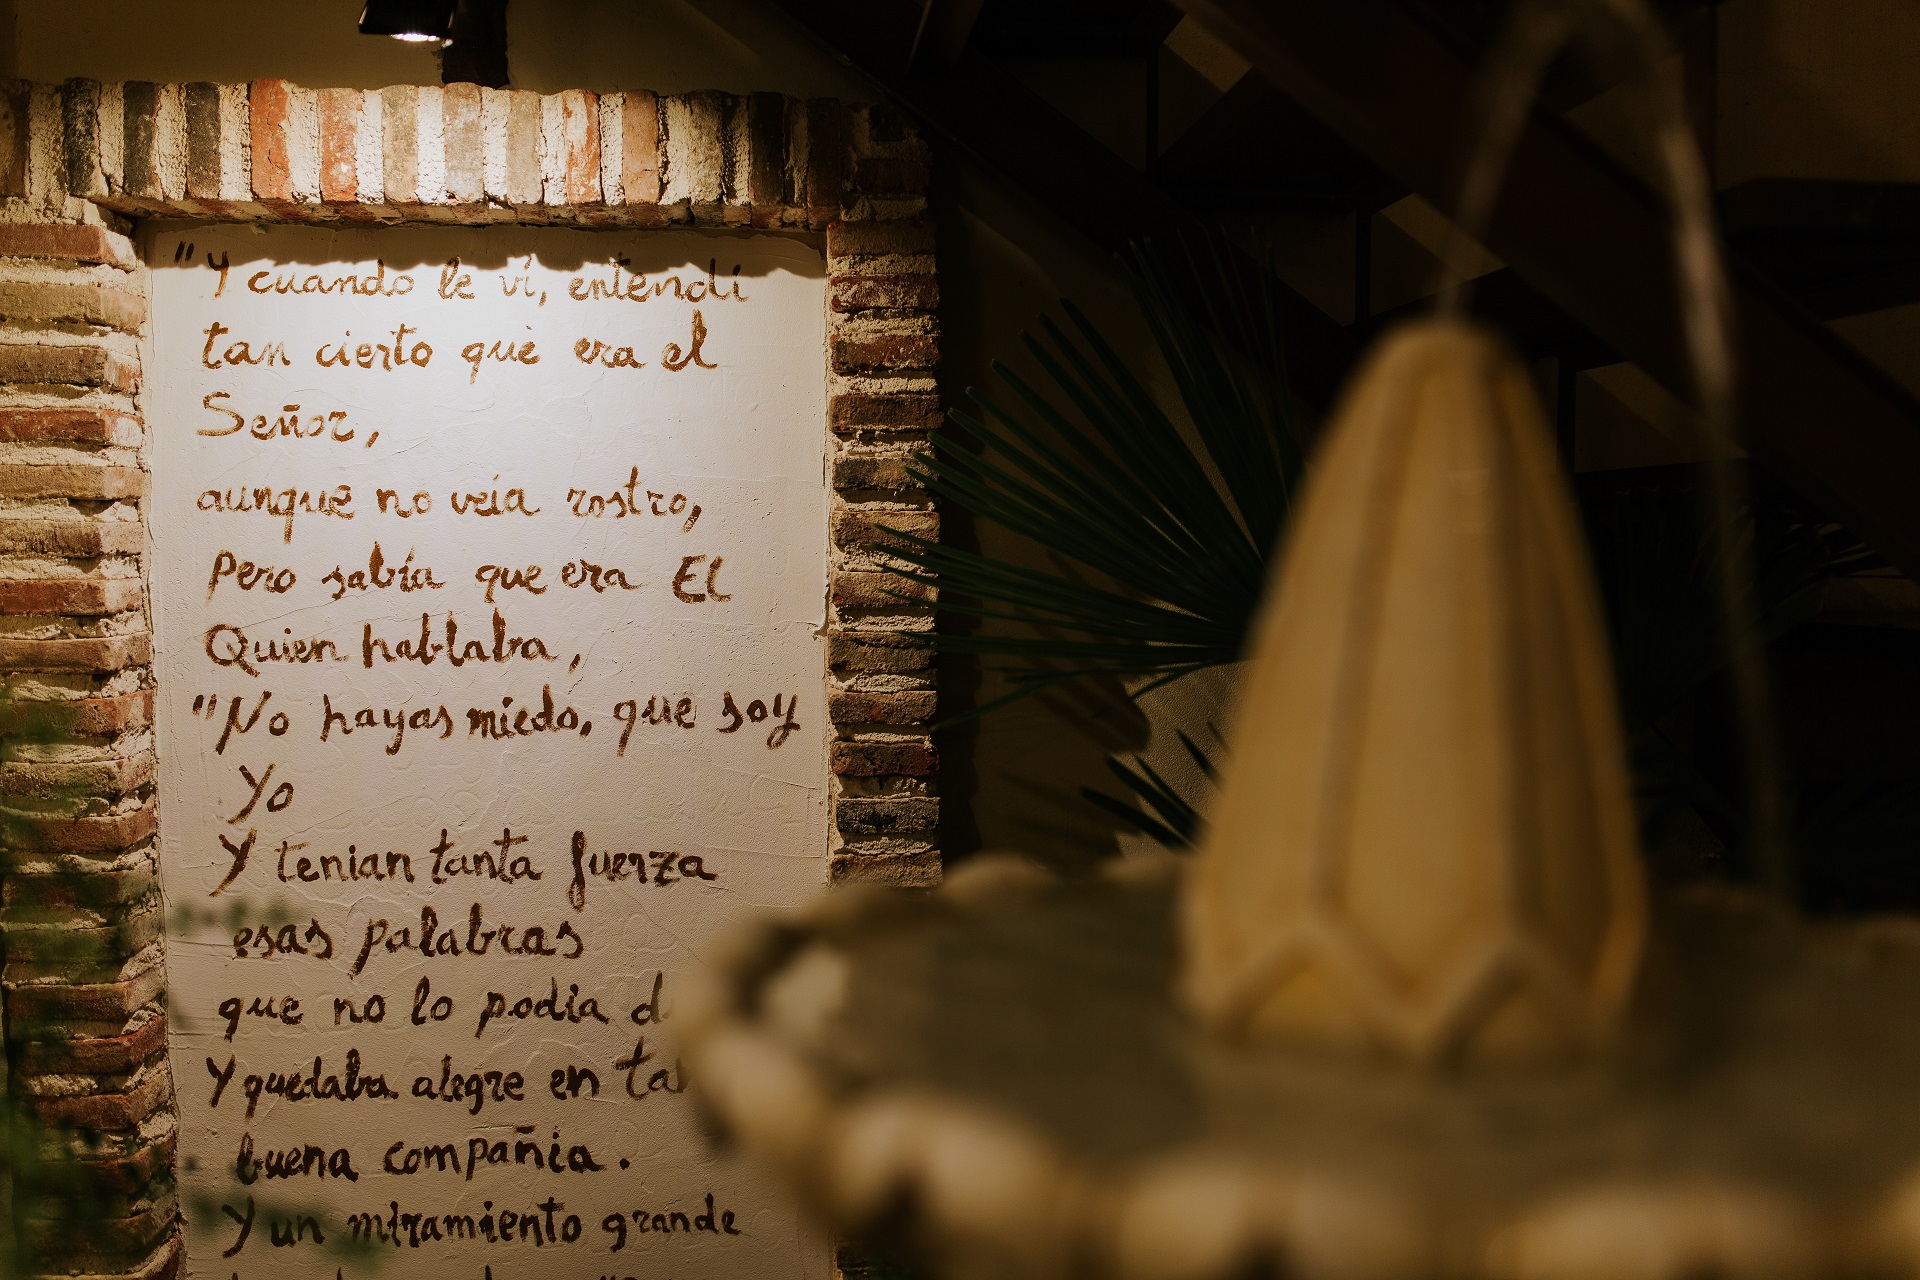 "Y cuando le ví, entendí
tan cierto qué era el
Señor,
aunque no veía rostro,
Pero sabía que era El
Quien hablaba,
"No hayas miedo, que soy
Yo
Y tenian tanta fuerza
esas palabras
que no lo podía
Y quedaba alegre en
buena compañia.
Y un miramiento grande